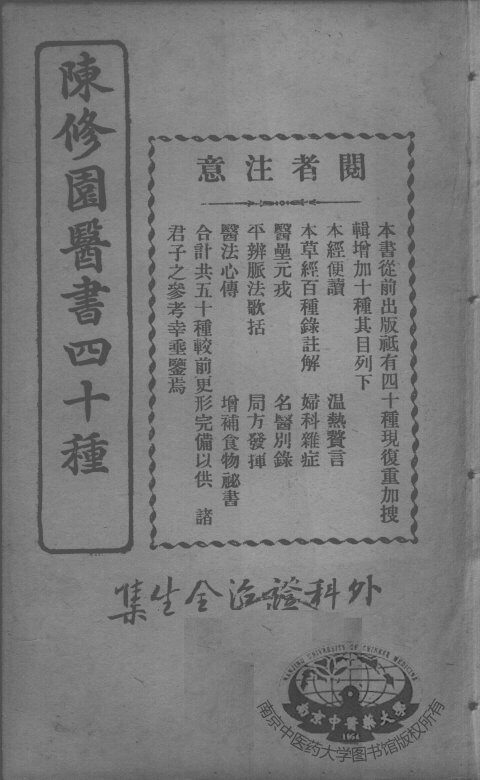 陳修園醫書四十種
閱者注意
本書從前出版祗有四十種現復重加搜
輯增加十種其目列下
本經便讀　溫熱贅言
本草經百種錄註解　婦科雜症
醫壘元戎　名醫別錄
平辨脈法歌括　局方發揮
醫法心傳　增補食物祕書
合計共五十種較前更形完備以供　諸
君子之參考幸垂鑒焉
外科證治全生集
NANJING UNIVERSITY OF CHINESE MEDICINE
南京中醫藥大學
1954
南京中医药大学图书馆版权所有